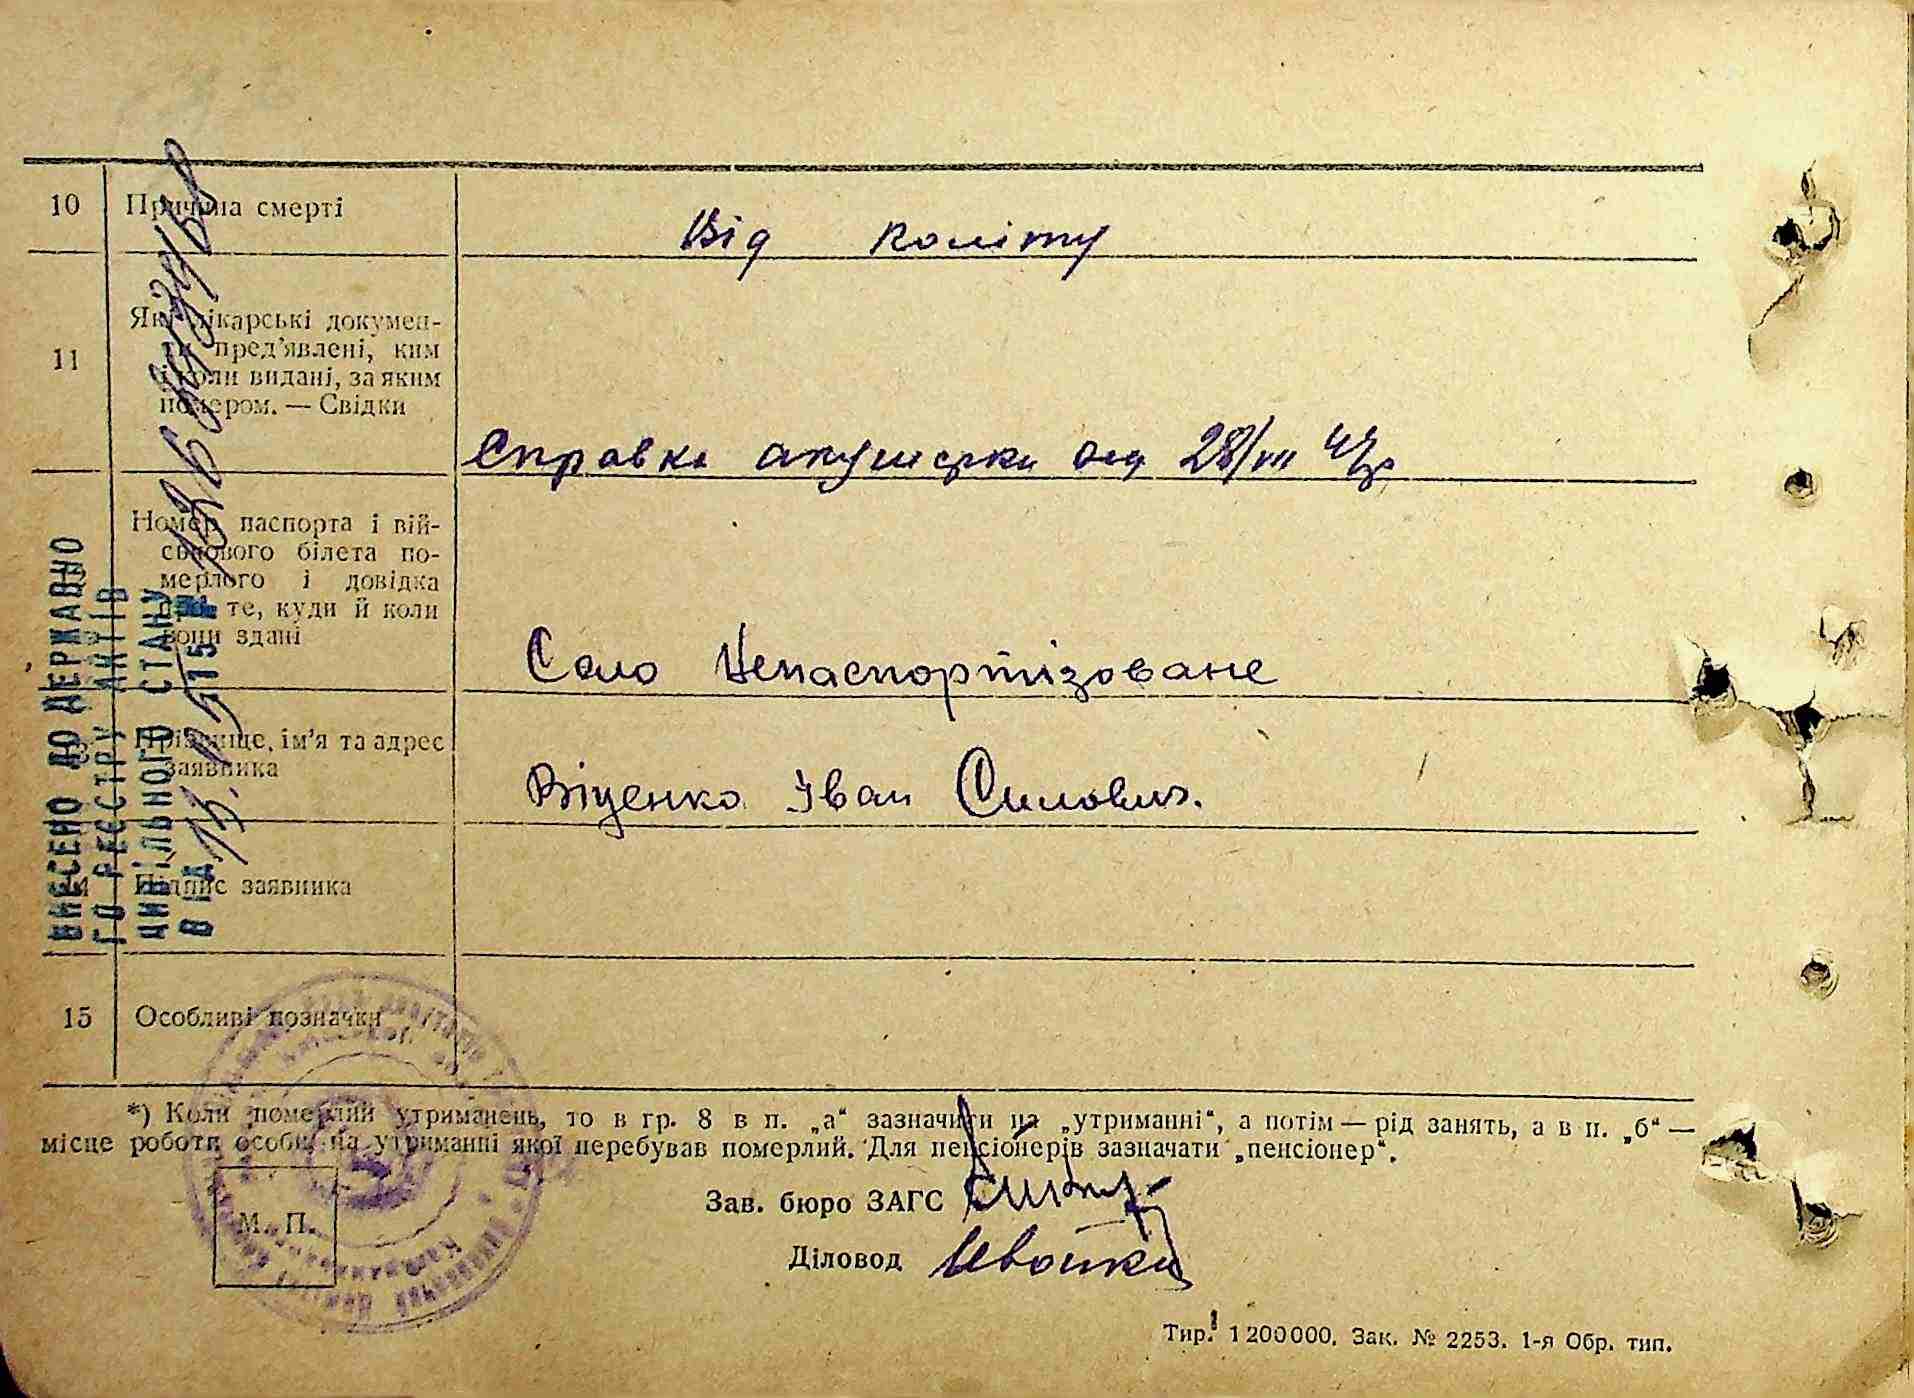 10 Причина смерті Від коліту
11 Які лікарські докумен-
ти пред'явлені, ким
і коли видані, за яким
номером. — Свідки
Справка акушерки від 28/VIII
Номер паспорта і вій-
ськового білета по-
мерлого і довідка
про те, куди й коли
вони здані
Село Непаспортизоване
Прізвище, ім'я та адрес
заявника
Віценко Іван Силович.
14 Підпис заявника
15 Особливі позначки
*) Коли померлий утриманець, то в гр. 8 в п. „а“ зазначити на „утриманні“, а потім — рід занять, а в п. „б“ —
місце роботи особи, на утриманні якої перебував померлий. Для пенсіонерів зазначати „пенсіонер“.
М. П.
Зав. бюро ЗАГС
Діловод
Тир. 1 200 000. Зак. № 2253. 1-я Обр. тип.
ВНЕСЕНО ДО ДЕРЖАВНО
ГО РЕЄСТРУ АКТІВ
ЦИВІЛЬНОГО СТАНУ
ВІД